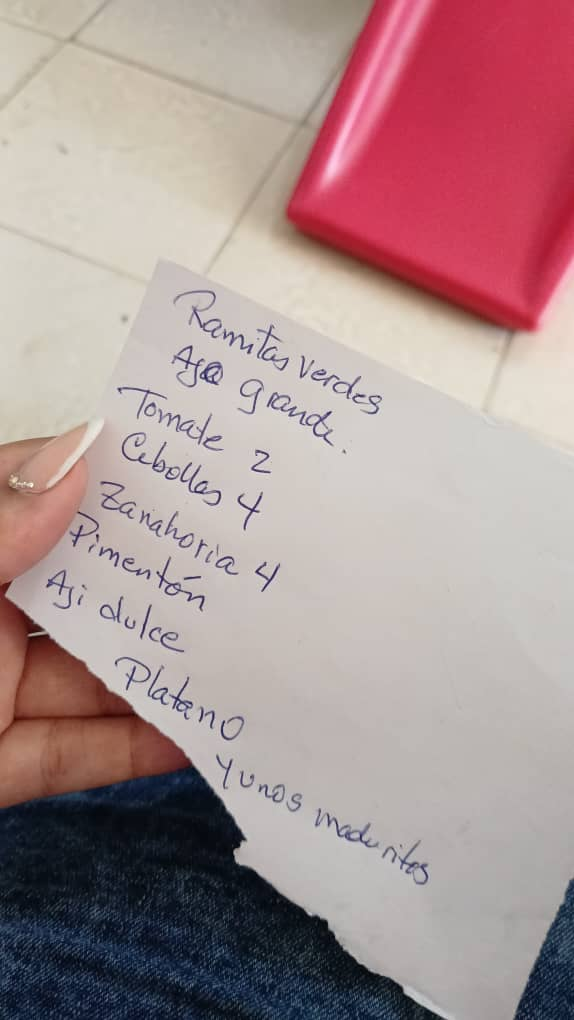 Ramitas Verdes
Ajo grande.
Tomate 2
Cebollas 4
Zanahoria 4
Pimentón
Aji dulce
Platano
Y unos maduritos